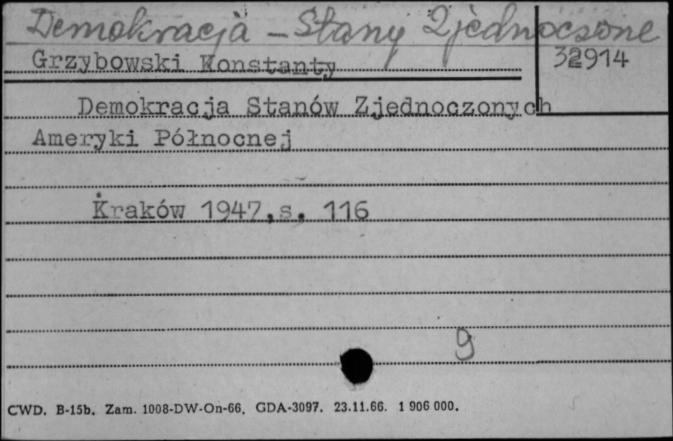 Demokracja - Stany Zjednoczone
Grzybowski Konstanty
32914
Demokracja Stanów Zjednoczonych
Ameryki Północnej
Kraków 1947, s. 116
9
CWD. B-15b. Zam. 1008-DW-On-66. GDA-3097. 23.11.66. 1 906 000.